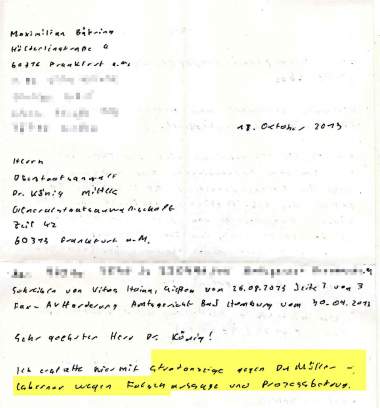 Maximilian Bähring
Hölderlinstraße 4
60316 Frankfurt a.M.
18. Oktober 2013
Herrn
Oberstaatsanwalt
Dr. König
Generalstaatsanwaltschaft
Zeil 42
60313 Frankfurt a.M.
Schreiben von Vitos Haina, Gießen vom 26.09.2013 Seite 3 von 3
Fax- Anforderung Amtsgericht Bad Homburg vom 30.04.2013
Sehr geehrter Herr Dr. König!
Ich erstatte hiermit Strafanzeige gegen Dr. Müller-
wegen Falschaussage und Prozessbetrug.